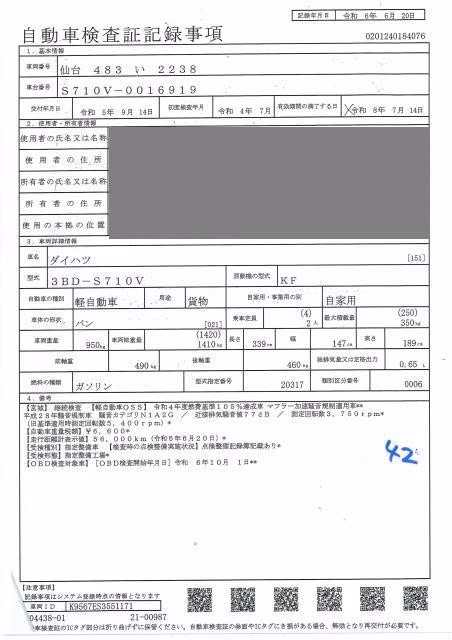 記録年月日 令和 6年 6月 20日
自動車検査証記録事項
0201240184076
1．基本情報
車両番号 仙台 483 い 2238
車台番号 S710V-0016919
交付年月日 令和 5年 9月 14日 初度検査年月 令和 4年 7月 有効期間の満了する日 令和 8年 7月 14日
2．使用者・所有者情報
使用者の氏名又は名称
使用者の住所
所有者の氏名又は名称
所有者の住所
使用の本拠の位置
3．車両詳細情報
車名 ダイハツ [151]
型式 3BD-S710V 原動機の型式 KF
自動車の種別 軽自動車 用途 貨物 自家用・事業用の別 自家用
車体の形状 バン [021] 乗車定員 (4) 2人 最大積載量 (250) 350kg
車両重量 950kg 車両総重量 (1420) 1410kg 長さ 339cm 幅 147cm 高さ 189cm
前軸重 490kg 後軸重 460kg 総排気量又は定格出力 0.65 L
燃料の種類 ガソリン 型式指定番号 20317 類別区分番号 0006
4．備考
【宮城】 継続検査 【軽自動車OSS】 令和4年度燃費基準105％達成車 マフラー加速騒音規制適用車**
平成28年騒音規制車 騒音カテゴリN1A2G ／ 近接排気騒音値77dB ／ 測定回転数3，750rpm*
(旧基準適用時測定回転数5，400rpm)*
【自動車重量税額】¥6，600*
【走行距離計表示値】56，000km（令和6年6月20日）*
【受検種別】指定整備車 【検査時の点検整備実施状況】点検整備記録簿記載あり*
【受検形態】指定整備工場*
【OBD検査対象車】[OBD検査開始年月日]令和 6年10月 1日**
42
【注意事項】
記録事項はシステム登録時点の情報となります
車両ID K9567ES3551171
04438-01 21-00987
車検査証のICタグ部分は折り曲げずに保管ください。自動車検査証の券面やICタグにき損がある場合、無効となり再交付が必要です。